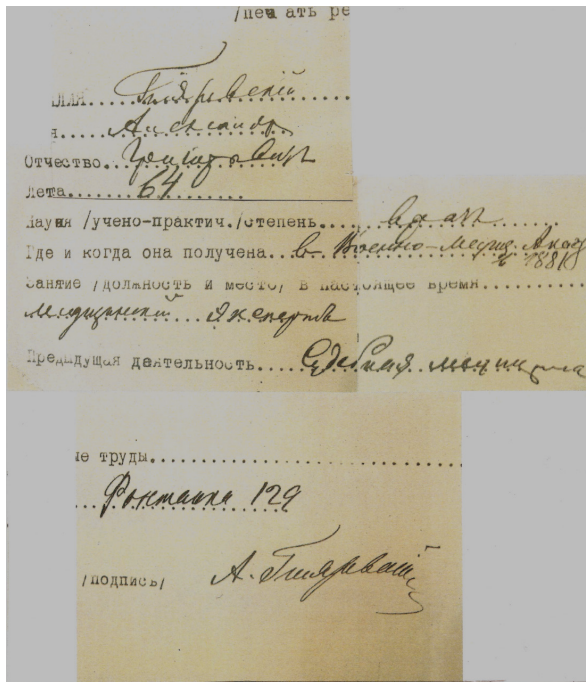 /печать ре
Александр
Отчество....Григорьевич
Лета........64
/учено-практич./степень.....врач
Где и когда она получена...в Военно-Медиц. Акад.
Занятие /должность и место/ в настоящее время........
медицинский эксперт
Предыдущая деятельность....Судебная медицина
ые труды...............................
Фонтанка 129
/подпись/ А.